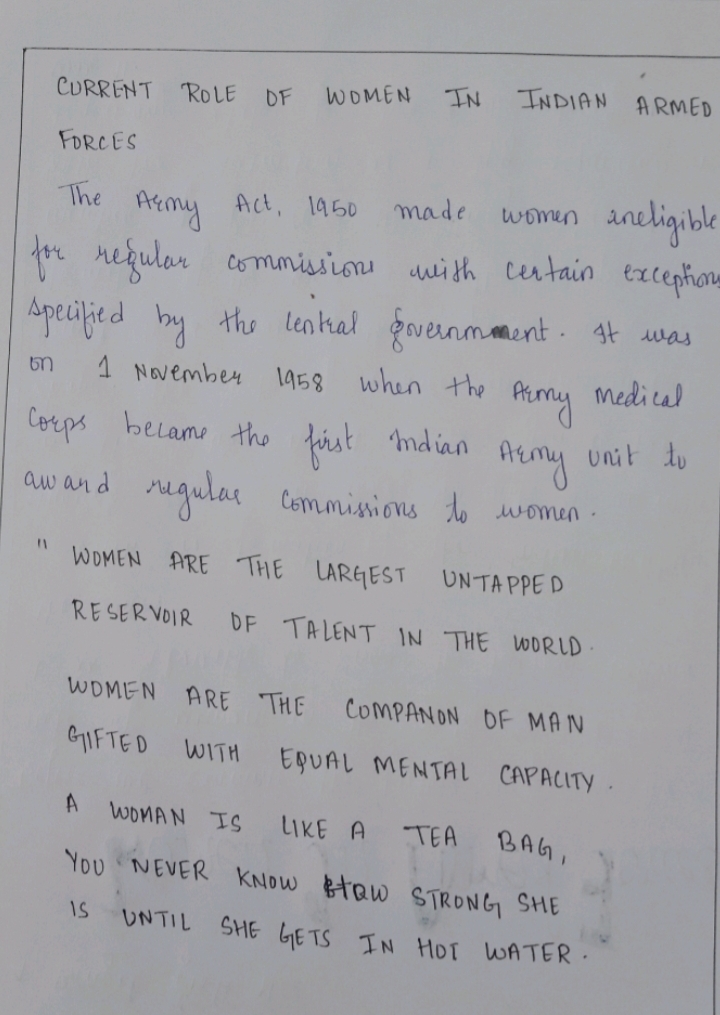 CURRENT ROLE OF WOMEN IN INDIAN ARMED
FORCES
The Army Act, 1950 made women ineligible
for regular commissions with certain exceptions
specified by the central government. It was
on 1 November 1958 when the Army Medical
Corps became the first Indian Army unit to
award regular commissions to women.
" WOMEN ARE THE LARGEST UNTAPPED
RESERVOIR OF TALENT IN THE WORLD.
WOMEN ARE THE COMPANON OF MAN
GIFTED WITH EQUAL MENTAL CAPACITY.
A WOMAN IS LIKE A TEA BAG,
YOU NEVER KNOW STRONG SHE
IS UNTIL SHE GETS IN HOT WATER.